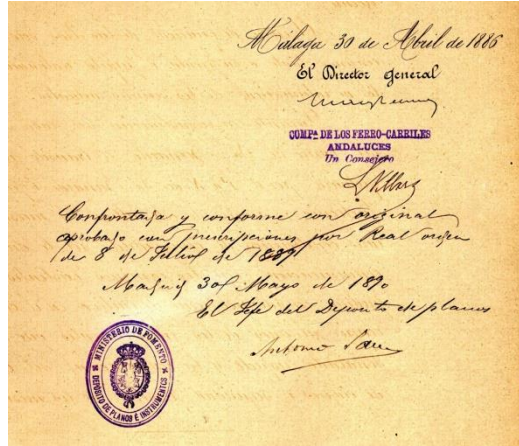 Málaga 30 de Abril de 1886
El Director general
COMPª DE LOS FERRO-CARRILES
ANDALUCES
Un Consejero
Confrontada y conforme con original
aprobado con prescripciones por Real orden
de 8 de de 1889
Madrid 30 Mayo de 1890
El Jefe del Deposito de planos
Antonio
MINISTERIO DE FOMENTO
DEPÓSITO DE PLANOS E INSTRUMENTOS